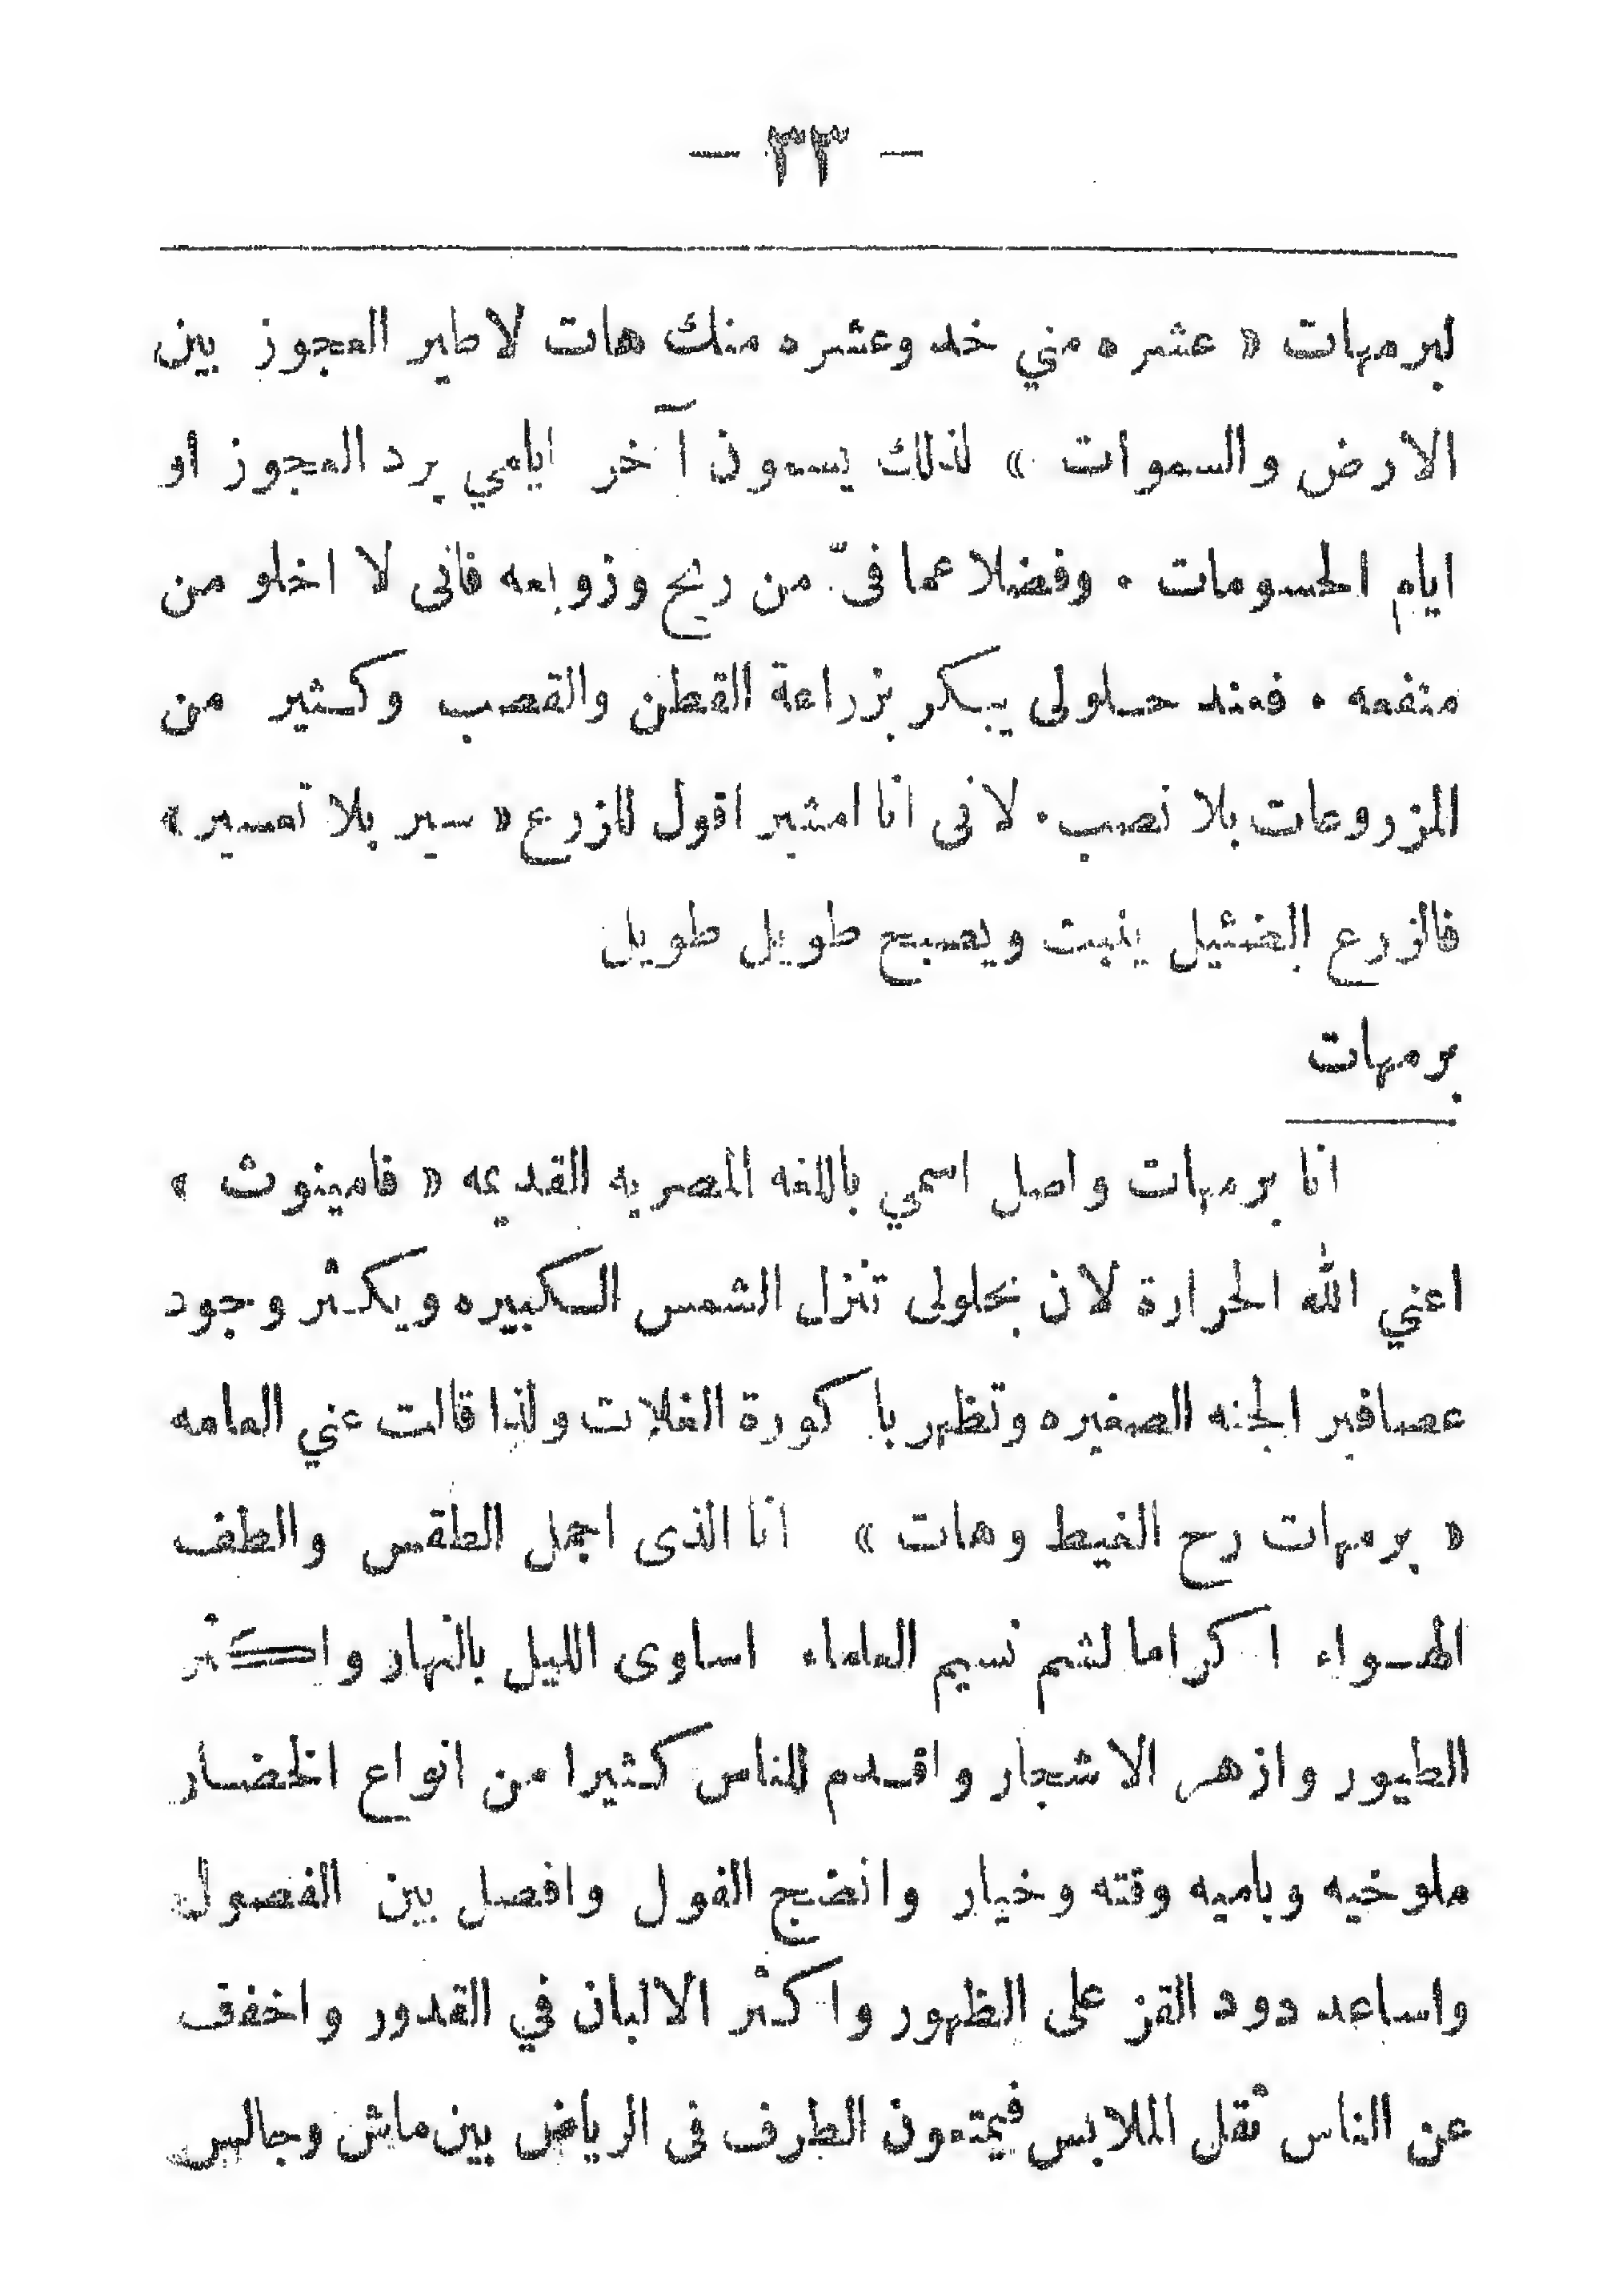 — ٣٣ —
لبرمهات « عشره مني خد وعشره منك هات لاطير العجوز بين
الارض والسموات » لذلك يسمون آخر ايامي برد العجوز او
ايام الحسومات . وفضلا عما فىّ من ريح وزوبعه فانى لا اخلو من
منفعه . فعند حلولى يبكر بزراعة القطن والقصب وكثير من
المزروعات بلا نصب . لانى انا امشير اقول للزرع « سير بلا تعسير »
فالزرع الضئيل ينبت ويصبح طويل طويل
برمهات
انا برمهات واصل اسمي باللغه المصريه القديمه « فامينوث »
اعني اله الحرارة لان بحلولى تنزل الشمس الكبيره ويكثر وجود
عصافير الجنه الصغيره وتظهر باكورة الغلات ولذا قالت عني العامه
« برمهات رح الغيط وهات » انا الذى اجمل الطقس والطف
الهواء اكراما لشم نسيم العلماء اساوى الليل بالنهار واكثر
الطيور وازهر الاشجار واقدم للناس كثيرا من انواع الخضار
ملوخيه وباميه وقته وخيار وانضج الفول وافصل بين الفصول
واساعد دود القز على الظهور واكثر الالبان في القدور واخفف
عن الناس ثقل الملابس فيمتعون الطرف فى الرياض بين ماش وجالس